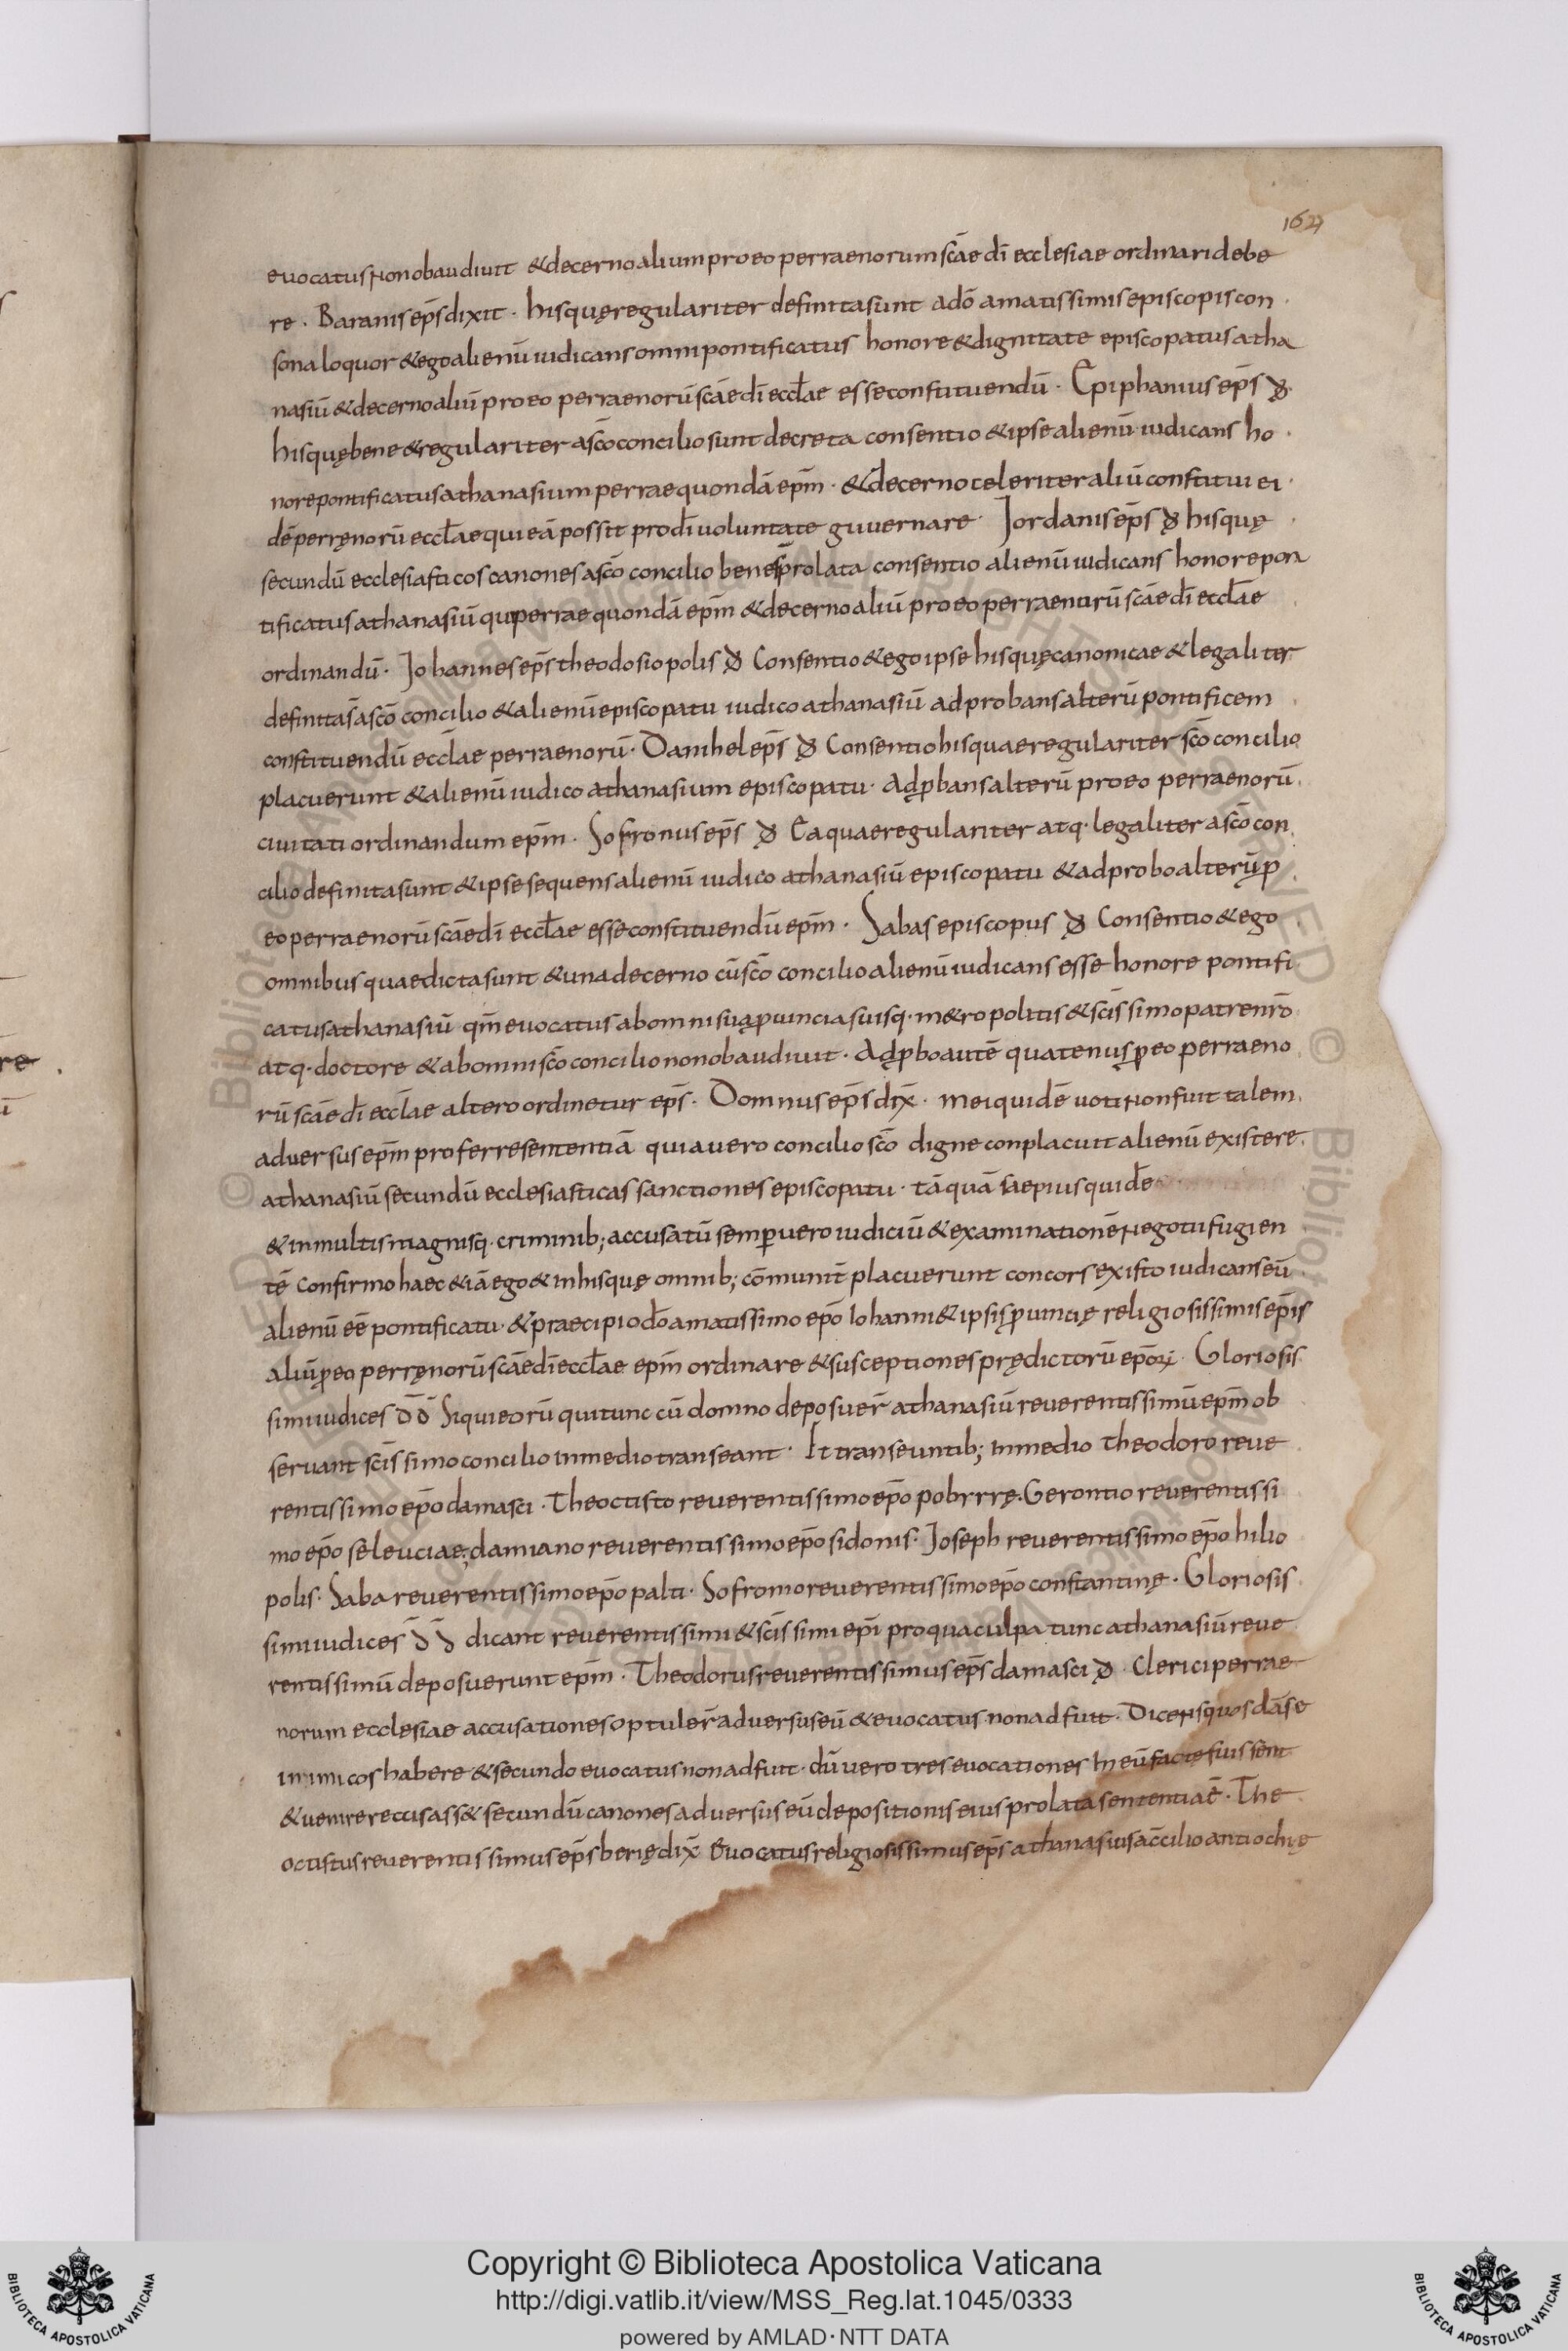 162
euocatus non obaudiuit & decerno alium pro eo perraenorum scāe dī ecclesiae ordinari debe
re · Baranis ep̄s dixit · hisquę regulariter definita sunt a dō amatissimis episcopis con
sona loquor & ego alienū iudicans omni pontificatus honore & dignitate episcopatus atha
nasiū & decerno aliū pro eo perraenorū scāe dī eccl̄ae esse constituendū · Epiphanius ep̄s đ
hisquę bene & regulariter a scō concilio sunt decreta consentio & ipse alienū iudicans ho
nore pontificatus athanasium perrae quondā ep̄m · & decerno celeriter aliū constitui ei
dē perręnorū eccl̄ae qui eā possit pro dī voluntate guuernare · Jordanis ep̄s đ hisquę
secundū ecclesiasticos canones a scō concilio bene s̄ prolata consentio alienū iudicans honore pon
tificatus athanasiū qui perrae quondā ep̄m & decerno aliū pro eo perraenorū scāe dī eccl̄ae
ordinandū · Johannes ep̄s theodosiopolis đ Consentio & ego ipse hisquę canonicae & legaliter
definita s̄ a scō concilio & alienū episcopatu iudico athanasiū adprobans alterū pontificem
constituendū eccl̄ae perraenorū · Danihel ep̄s đ Consentio hisquae regulariter scō concilio
placuerunt & alienū iudico athanasium episcopatu · adꝓbans alterū pro eo perraenorū
ciuitati ordinandum ep̄m · Sofronius ep̄s đ Ea quae regulariter atq· legaliter a scō con
cilio definita sunt & ipse sequens alienū iudico athanasiū episcopatu & adprobo alterū ꝓ
eo perraenorū scāe dī eccl̄ae esse constituendū ep̄m · Sabas episcopus đ Consentio & ego
omnibus quae dicta sunt & una decerno cū scō concilio alienū iudicans esse honore pontifi
catus athanasiū qm̄ euocatus ab omni sua ꝓuincia suisq· m&ropolitis & scīssimo patre nr̄o
atq· doctore & ab omni scō concilio non obaudiuit · Adꝓbo autē quatenus ꝓ eo perraeno
rū scāe dī eccl̄ae altero ordinetur ep̄s · Domnus ep̄s dix̄ · mei quidē uoti non fuit talem
aduersus ep̄m proferre sententiā quia uero concilio scō digne conplacuit alienū existere
athanasiū secundū ecclesiasticas sanctiones episcopatu · tāquā saepius quidē
& in multis magnisq· criminib; accusatū semꝑ uero iudiciū & examinationē negotii fugien
tē Confirmo haec &iā ego & in hisquę omnib; cōmunit̄ placuerunt concors existo iudicans eū
alienū eē pontificatu · & praecipio dō amatissimo ep̄o Iohanni & ipsis ꝓuincię religiosissimis ep̄is
aliū ꝓ eo perręnorū scāe dī eccl̄ae ep̄m ordinare & susceptiones prędictorū ep̄oꝝ · Gloriosis
simi iudices d̄d̄ Siqui eorū qui tunc cū domno deposuer̄ athanasiū reuerentissimū ep̄m ob
seruant scīssimo concilio in medio transeant · Et transeuntib; in medio Theodoro reue
rentissimo ep̄o damasci · Theoctisto reuerentissimo ep̄o pobrrrę · Gerontio reuerentissi
mo ep̄o seleuciae; damiano reuerentissimo ep̄o sidonis · Joseph reuerentissimo ep̄o hilio
polis · Saba reuerentissimo ep̄o palti · Sofronio reuerentissimo ep̄o constantinę · Gloriosis
simi iudices d̄ d̄ dicant reuerentissimi & scīssimi ep̄i pro qua culpa tunc athanasiū reue
rentissimū deposuerunt ep̄m · Theodorus reuerentissimus ep̄s damasci đ · Clerici perrae
norum ecclesiae accusationes optuler̄ aduersus eū & euocatus non adfuit · Dicens quosdā se
inimicos habere & secundo euocatus non adfuit · dū uero tres euocationes in eū factę fuissent
& uenire reccusass& secundū canones aduersus eū depositionis eius prolata sententia ē · The
octistus reuerentissimus ep̄s berię dix̄ Euocatus religiosissimus ep̄s athanasius a c̄cilio antiochię
re
Copyright © Biblioteca Apostolica Vaticana
http://digi.vatlib.it/view/MSS_Reg.lat.1045/0333
powered by AMLAD·NTT DATA
BIBLIOTECA APOSTOLICA VATICANA
BIBLIOTECA APOSTOLICA VATICANA